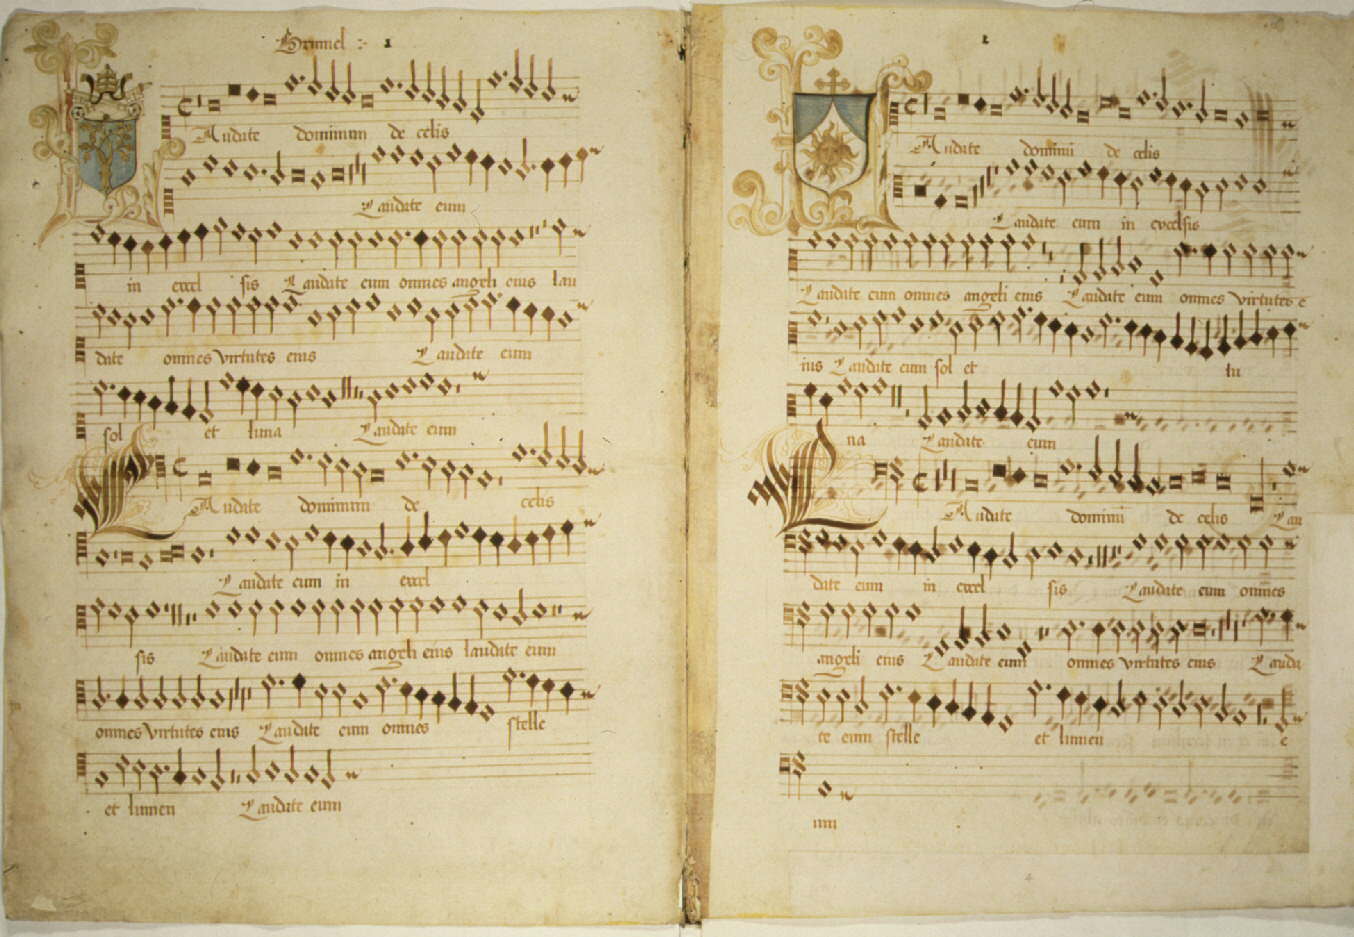 Brumel :· 1
Laudate dominum de celis
Laudate eum
in excel sis Laudate eum omnes angeli eius lau
date omnes virtutes eius Laudate eum
sol et luna Laudate eum
Laudate dominum de celis
Laudate eum in excel
sis Laudate eum omnes angeli eius laudate eum
omnes virtutes eius Laudate eum omnes stelle
et lumen Laudate eum
1
Laudate dominū de celis
Laudate eum in excelsis
Laudate eum omnes angeli eius Laudate eum omnes virtutes e
ius Laudate eum sol et lu
na Laudate eum
Laudate dominū de celis Lau
date eum in excel sis Laudate eum omnes
angeli eius Laudate eum omnes virtutes eius Lauda
te eum stelle et lumen e
um
4